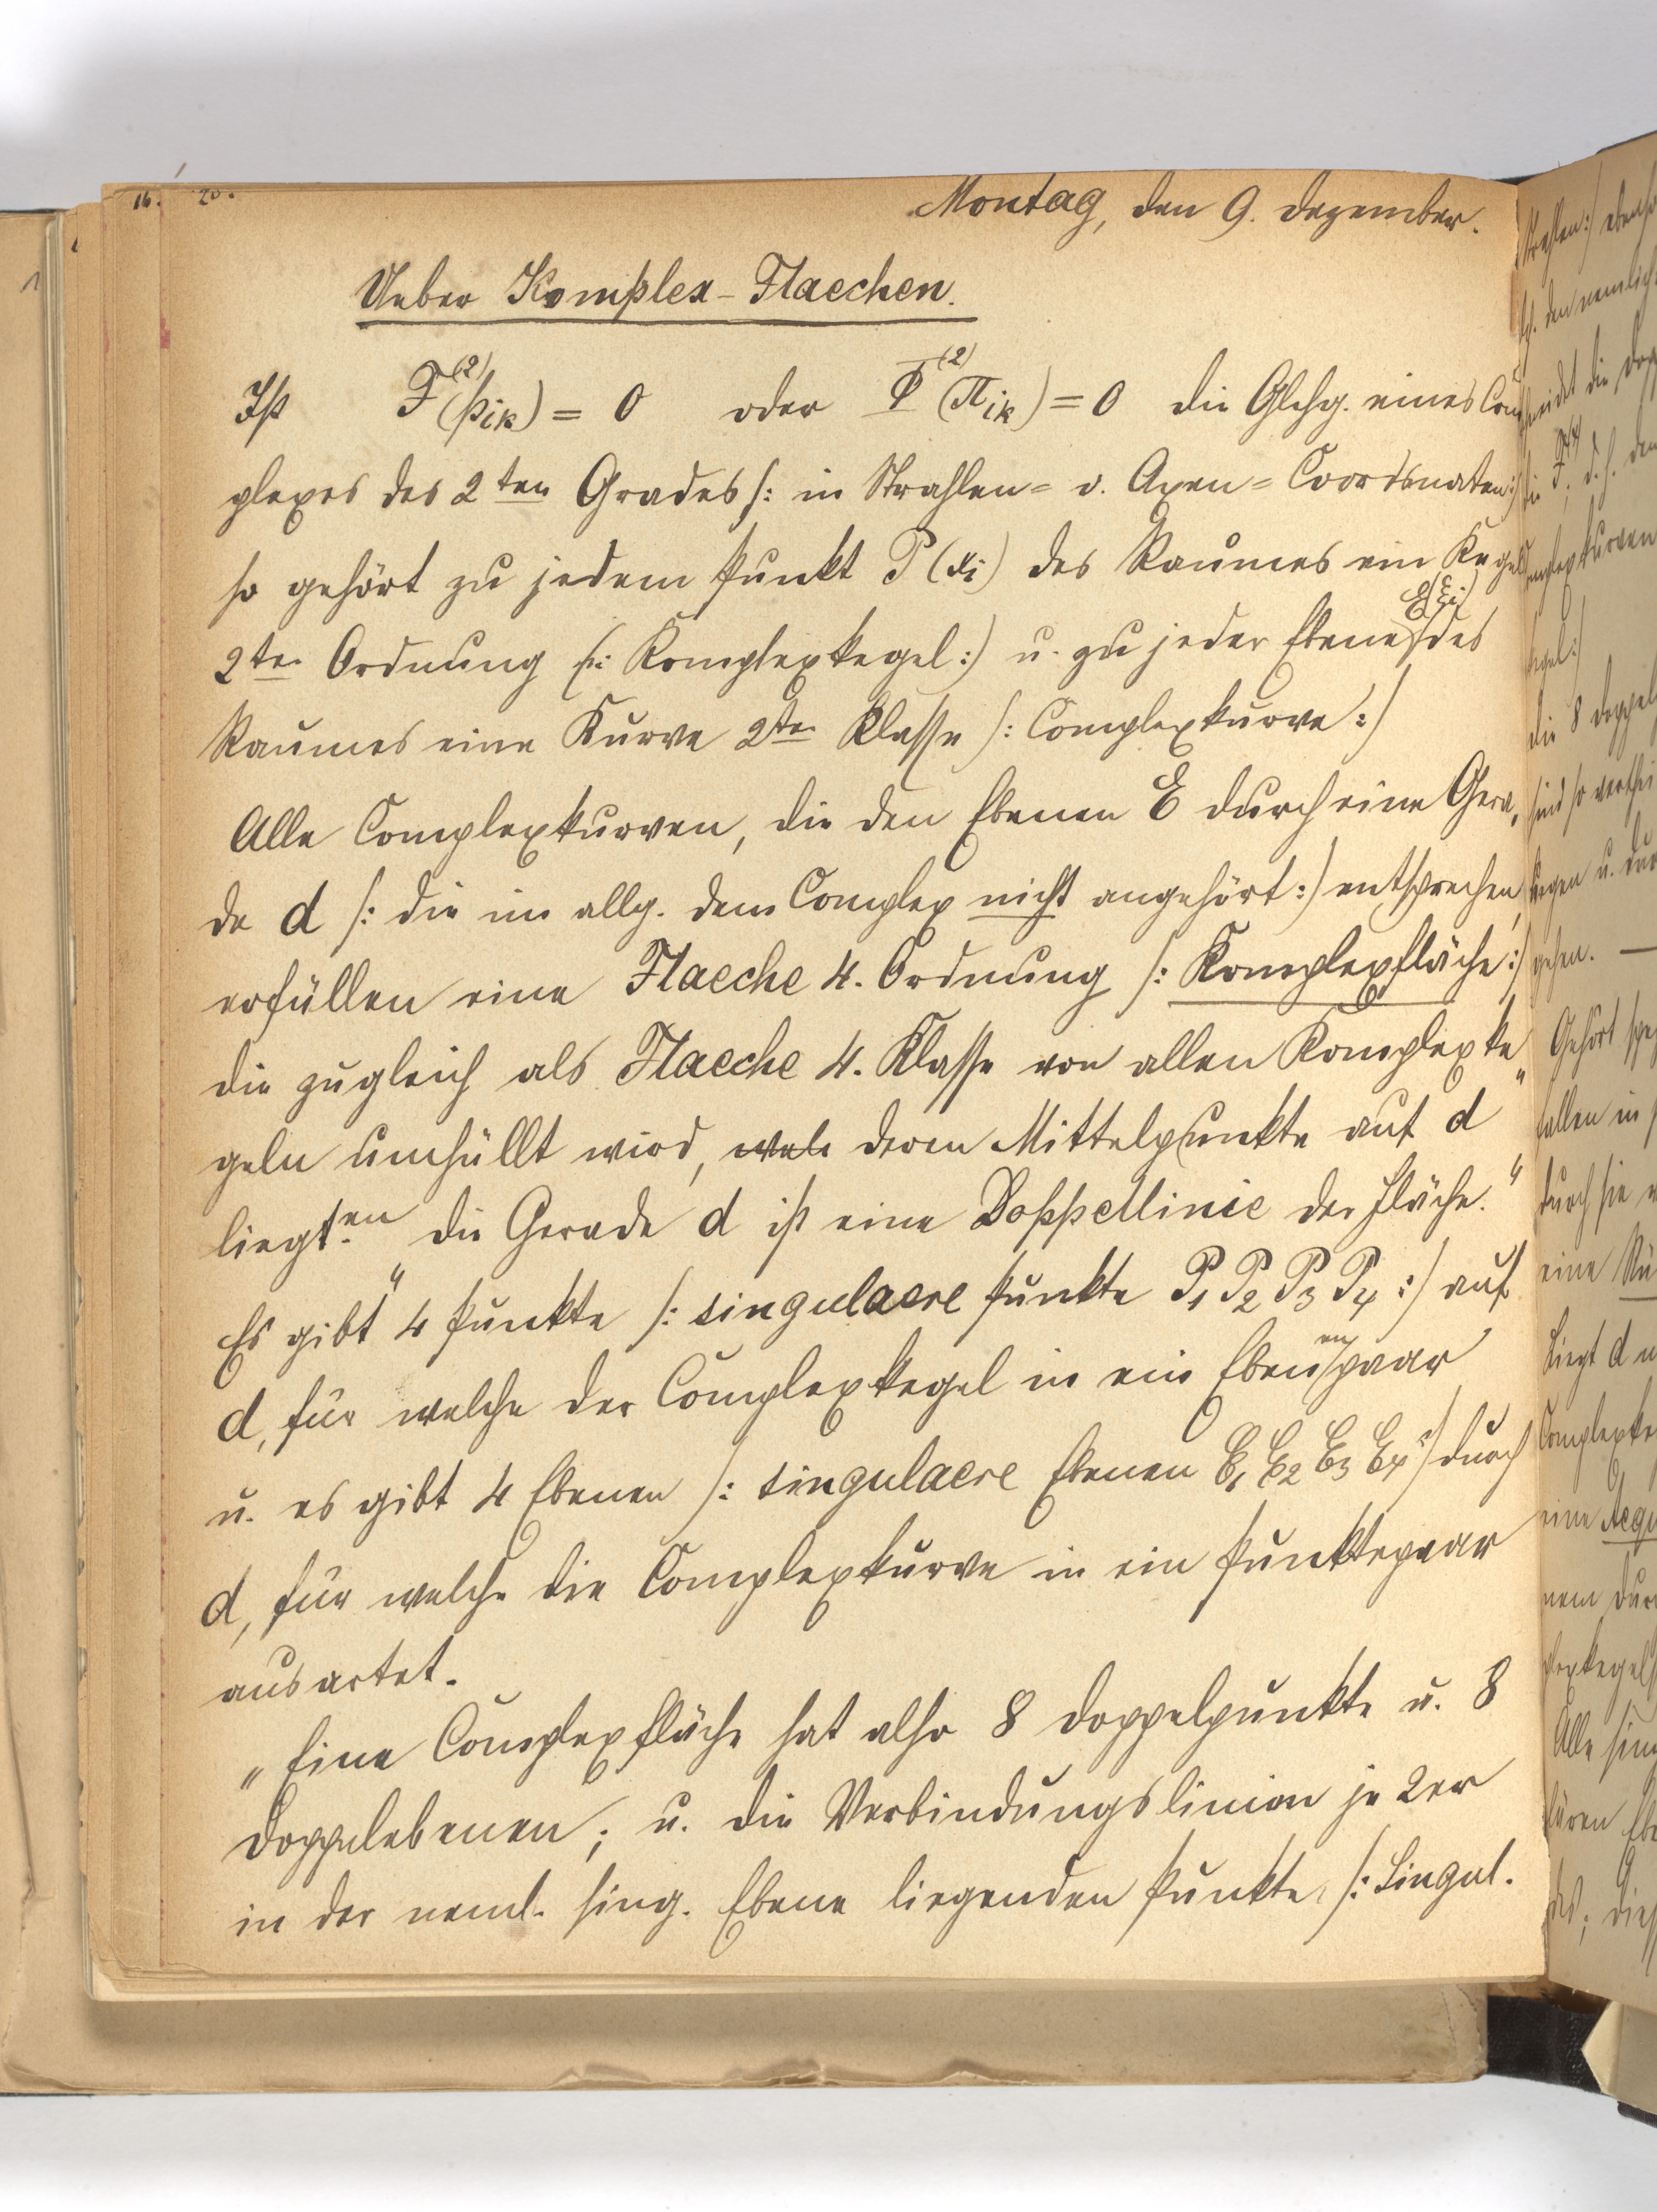 16. 20.
Montag, den 9. Dezember.
Ueber Komplex-Flaechen.
Ist F⁽²⁾(pik) = 0 oder Φ⁽²⁾(πik) = 0 die Glchg. eines Com
plexes des 2ten Grades /: in Strahlen- o. Axen-Coordinaten :/
so gehört zu jedem Punkt P (xi) des Raumes ein Kegel
2ter Ordnung /: Komplexkegel :/ u. zu jeder Ebene E(ξi) des
Raumes eine Kurve 2ter Klasse /: Complexkurve :/
Alle Complexkurven, die den Ebenen E durch eine Gera,
de d /: die im allg. dem Complex nicht angehört :/ entsprechen,
erfüllen eine Flaeche 4. Ordnung /: Komplexfläche :/
die zugleich als Flaeche 4. Klasse von allen Komplexke"
geln umhüllt wird, welc deren Mittelpunkte auf d
liegt.en „ die Gerade d ist eine Doppellinie der Fläche.“
Es gibt „ 4 Punkte /: singulaere Punkte P1 P2 P3 P4 :/ auf
d, für welche der Complexkegel in ein Ebenenpaar
u. es gibt 4 Ebenen /: singulaere Ebenen E1 E2 E3 E4 :/ durch
d, für welche die Complexkurve in ein Punktepaar
ausartet.
„ Eine Complexfläche hat also 8 Doppelpunkte u. 8
Doppelebenen; u. die Verbindungslinien je 2er
in der neml. sing. Ebene liegenden Punkte /: Singul.